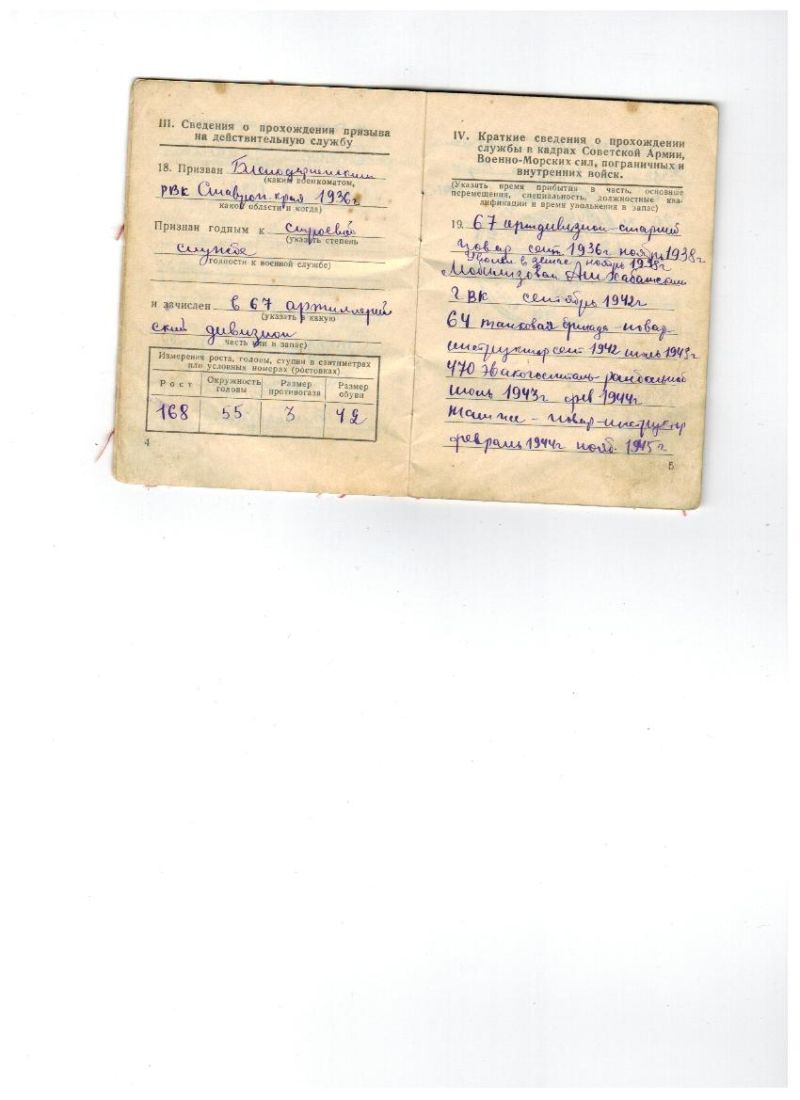 III. Сведения о прохождении призыва
на действительную службу
18. Призван Благодарненским
(каким военкоматом,
РВК Ставроп. края 1936г
какой области и когда)
Признан годным к строевой
(указать степень
службе
годности к военной службе)
и зачислен в 67 артиллерий
(указать в какую
ский дивизион
часть или в запас)
Измерения роста, головы, ступни в сантиметрах
или условных номерах (ростовках)
Рост Окружность головы Размер противогаза Размер обуви
168 55 3 42
4
IV. Краткие сведения о прохождении
службы в кадрах Советской Армии,
Военно-Морских сил, пограничных и
внутренних войск.
(Указать время прибытия в часть, основные
перемещения, специальность, должностные ква-
лификации и время увольнения в запас)
19. 67 артдивизион-старший
повар сент 1936г ноябрь 1938г
Уволен в запас ноябрь 1938г
Мобилизован
ГВК сентябрь 1942г
64 танковая бригада-повар
инструктор сент 1942 июль 1943г
470 Эвакогоспиталь-
июль 1943г фев 1944г
повар-инструктор
февраль 1944г нояб. 1945г
5